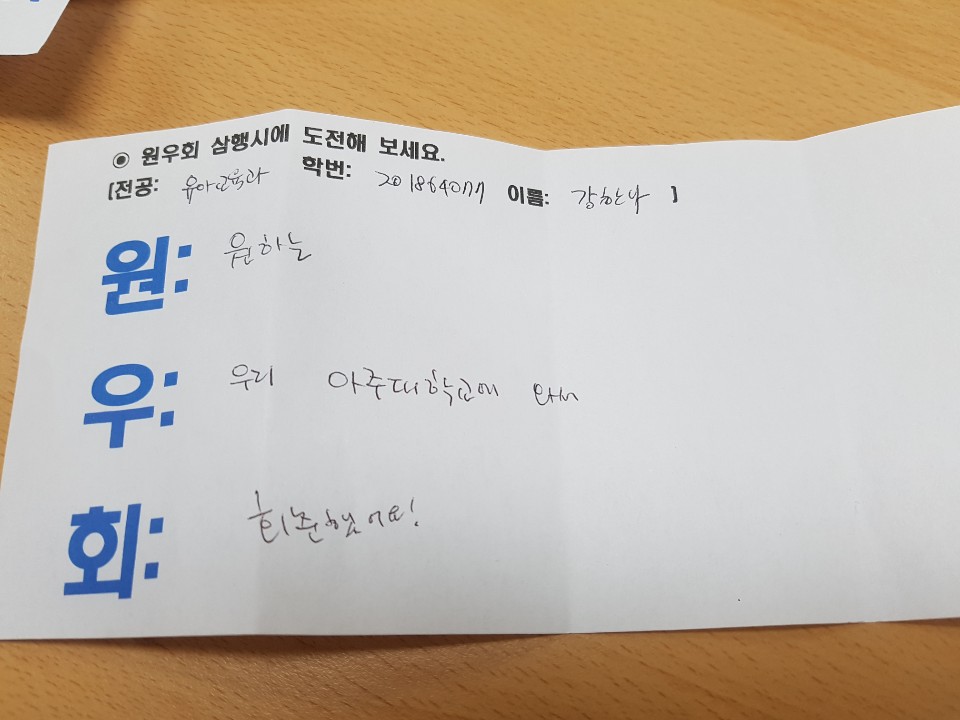 ◉ 원우회 삼행시에 도전해 보세요.
[전공: 유아교육과 학번: 201864077 이름: 강한나 ]
원: 원하늘
우: 우리 아주대학교에 와서
회: 회춘했어요!